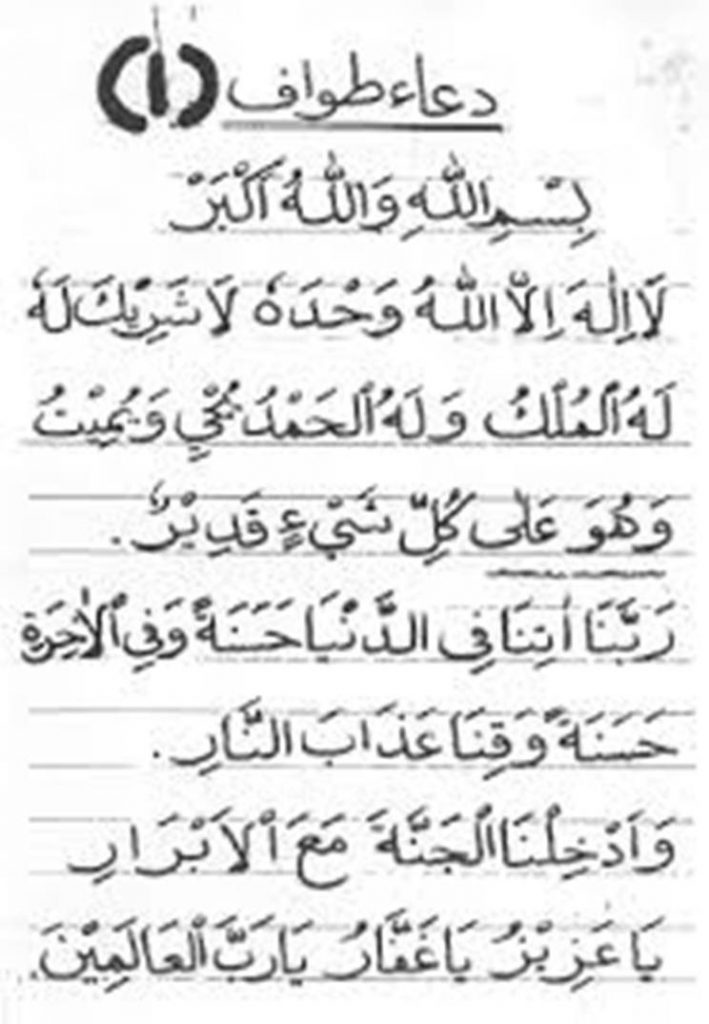 دعاء طواف (١)
بِسْمِ اللّٰهِ وَاللّٰهُ اَكْبَرْ
لَا اِلٰهَ اِلَّا اللّٰهُ وَحْدَهٗ لَا شَرِيْكَ لَهٗ
لَهُ الْمُلْكُ وَلَهُ الْحَمْدُ يُحْيِي وَيُمِيْتُ
وَهُوَ عَلٰى كُلِّ شَيْءٍ قَدِيْرٌ.
رَبَّنَا اٰتِنَا فِى الدُّنْيَا حَسَنَةً وَفِي الْاٰخِرَةِ
حَسَنَةً وَقِنَا عَذَابَ النَّارِ.
وَاَدْخِلْنَا الْجَنَّةَ مَعَ الْاَبْرَارِ
يَا عَزِيْزُ يَا غَفَّارُ يَا رَبَّ الْعَالَمِيْنَ.